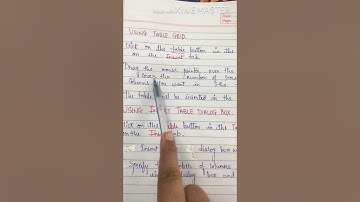 Made with KINEMASTER
USING TABLE GRID
Click on the table button in the
on the Insert tab.
Drag the mouse pointer over the
the number of
columns you want in the
The table will be inserted in the
USING INSERT TABLE DIALOG BOX
Click on the table button in the
on the Insert tab.
Insert dialog box
Specify number of columns
dialog box and